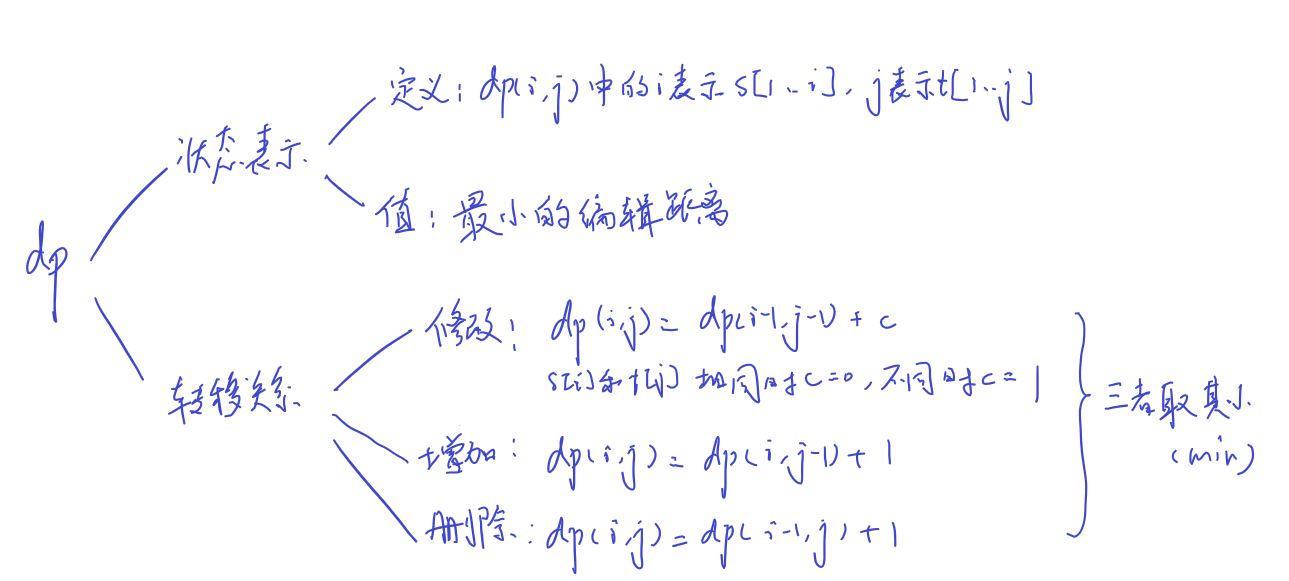 dp
状态表示
定义：dp(i,j)中的i表示s[1..i]，j表示t[1..j]
值：最小的编辑距离
转移关系
修改：dp(i,j)=dp(i-1,j-1)+c
s[i]和t[j]相同时c=0，不同时c=1
增加：dp(i,j)=dp(i,j-1)+1
删除：dp(i,j)=dp(i-1,j)+1
三者取其小
(min)